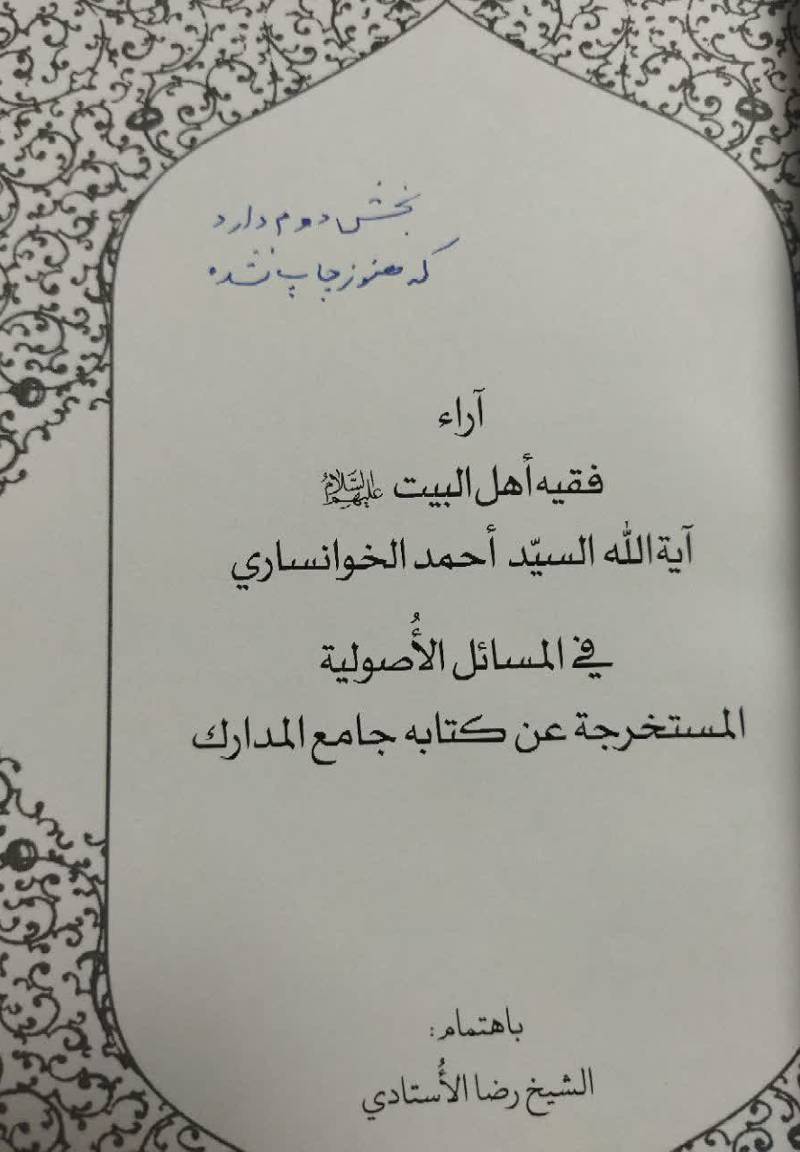 بخش دوم دارد
که هنوز چاپ نشده
آراء
فقيه أهل البيت عليهم السلام
آية الله السيّد أحمد الخوانساري
في المسائل الأُصولية
المستخرجة عن كتابه جامع المدارك
باهتمام:
الشيخ رضا الأُستادي